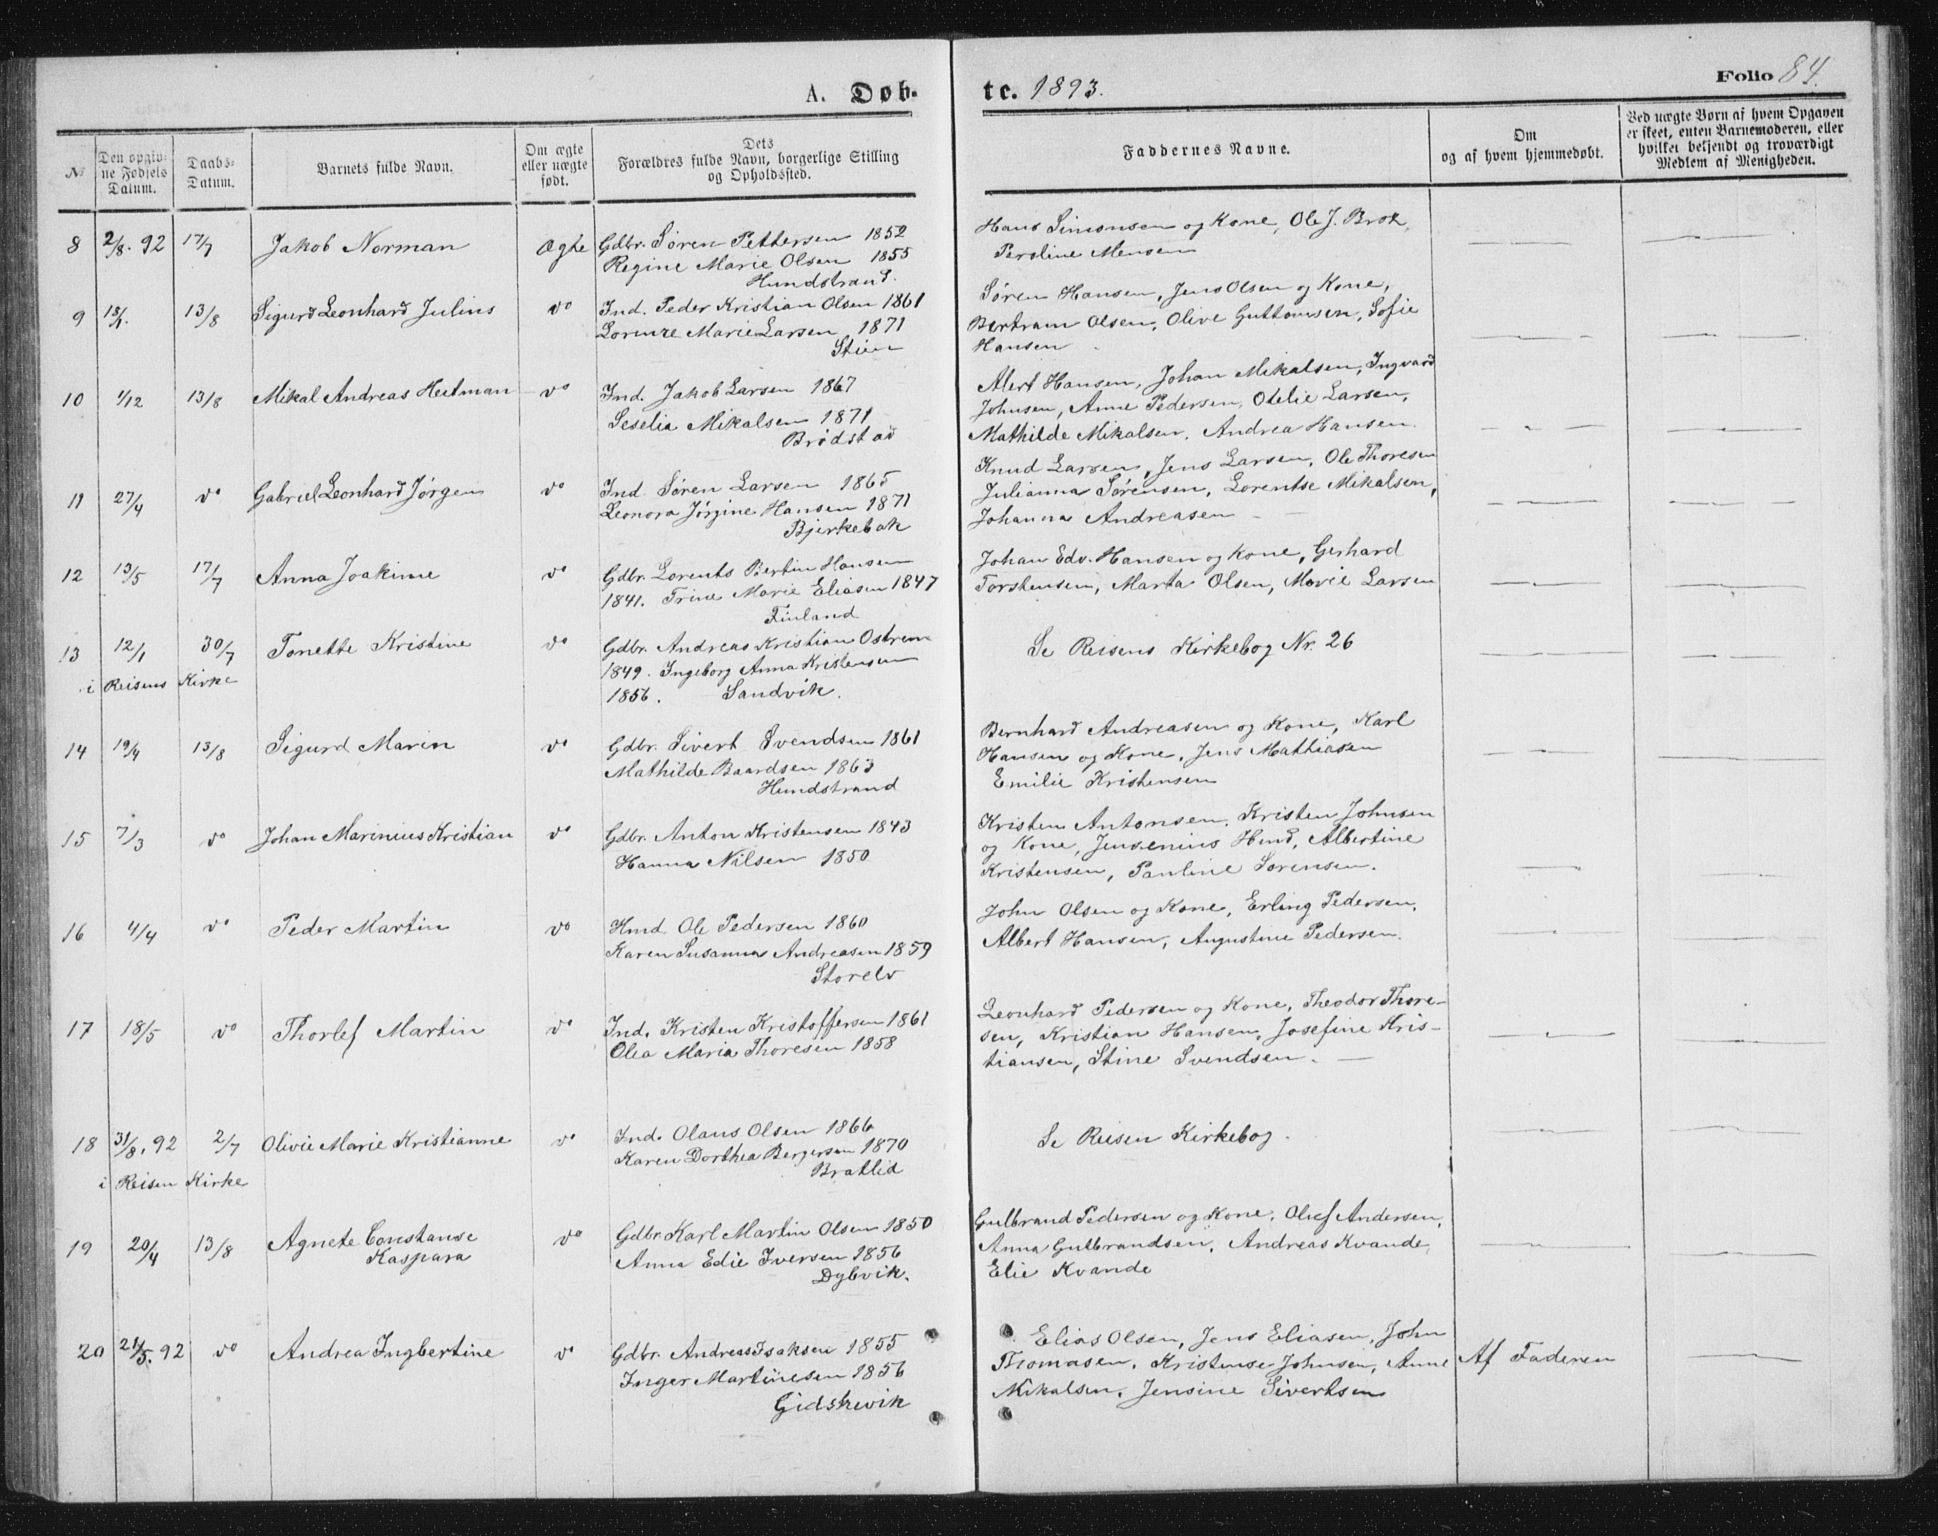 A. Døb- te. 1893. Folio 84.
№
Den opgiv-
ne Fødsels
Datum.
Daabs-
Datum.
Barnets fulde Navn.
Om ægte
eller uægte
født.
Dets
Forældres fulde Navn, borgerlige Stilling
og Opholdssted.
Faddernes Navne.
Om
og af hvem hjemmedøbt.
Ved uægte Børn af hvem Opgaven
er skeet, enten Barnemoderen, eller
hvilket bekjendt og troværdigt
Medlem af Menigheden.
8 2/8. 92 17/7 Jakob Norman ægte
Gdbr. Søren Pettersen 1852
Regine Marie Olsen 1855
Hundstrand.
Hans Simonsen og Kone, Ole J. Brox,
Peroline Mensen
9 13/8 Sigurd Leonhard Julius do
Ind. Peder Kristian Olsen 1861
Lorenze Marie Larsen 1871
Stien
Søren Hansen, Jens Olsen og Kone,
Bertram Olsen, Olive Guttomsen, Sofie
Hansen
10 1/12 13/8 Mikal Andreas Heitman do
Ind. Jakob Larsen 1867
Seselia Mikalsen 1871
Brødstad
Alert Hansen, Johan Mikalsen, Ingvard
Johnsen, Anne Pedersen, Otelie Larsen,
Mathilde Mikalsen, Andrea Hansen.
11 27/4 do Gabriel Leonhard Jørgen do
Ind. Søren Larsen 1865
Leonora Jørgine Hansen 1871
Bjerkebak
Knud Larsen, Jens Larsen, Ole Thoresen
Julianna Sørensen, Lorentse Mikalsen,
Johanna Andreasen
12 13/5 17/7 Anna Joakime do
Gdbr. Lorents Bertin Hansen
1841. Trine Marie Eliasen 1847
Finland
Johan Edv. Hansen og Kone, Gerhard
Torstensen, Marta Olsen, Marie Larsen
13 12/1 30/7 Tonette Kristine do
i Reisens Kirke
Gdbr. Andreas Kristian Ostrem
1849. Ingeborg Anna Kristensen
1856. Sandvik.
Se Reisens Kirkebog Nr. 26
14 19/4 13/8 Sigurd Marin do
Gdbr. Sivert Svendsen 1861
Mathilde Baardsen 1863
Hundstrand
Bernhard Andreasen og Kone, Karl
Hansen og Kone, Jens Mathiasen
Emilie Kristensen
15 7/3 do Johan Marinius Kristian do
Gdbr. Anton Kristensen 1843
Hanna Nilsen 1850
Kristen Antonsen, Kristen Johnsen
og Kone, Jensenius Hind, Albertine
Kristensen, Pauline Sørensen.
16 4/4 do Peder Martin do
Hmd. Ole Pedersen 1860
Karen Susanna Andreasen 1859
Storelv
John Olsen og Kone, Erling Pedersen,
Albert Hansen, Augustine Pedersen.
17 18/5 do Thorlef Martin do
Ind. Kristen Kristoffersen 1861
Olea Maria Thoresen 1858
Leonhard Pedersen og Kone, Theodor Thore-
sen, Kristian Hansen, Josefine Kris-
tiansen, Stine Svendsen.
18 31/8. 92 2/7 Olivie Marie Kristianne do
i Reisen Kirke
Ind. Olaus Olsen 1866
Karen Dorthea Bergersen 1870
Brattlid
Se Reisen Kirkebog.
19 20/4 13/8 Agnete Constanse
Kaspara do
Gdbr Karl Martin Olsen 1850
Anna Edie Iversen 1856
Dybvik.
Gulbrand Pedersen og Kone, Olief Andersen,
Anna Gulbrandsen, Andreas Kvande,
Elie Kvande
20 24/5. 92 do Andrea Ingbertine do
Gdbr. Andreas Isaksen 1855
Inger Martinesen 1856
Gidskevik
Elias Olsen, Jens Eliasen, John
Thomasen, Kristense Johnsen, Anne
Mikalsen, Jensine Sivertsen
Af Faderen